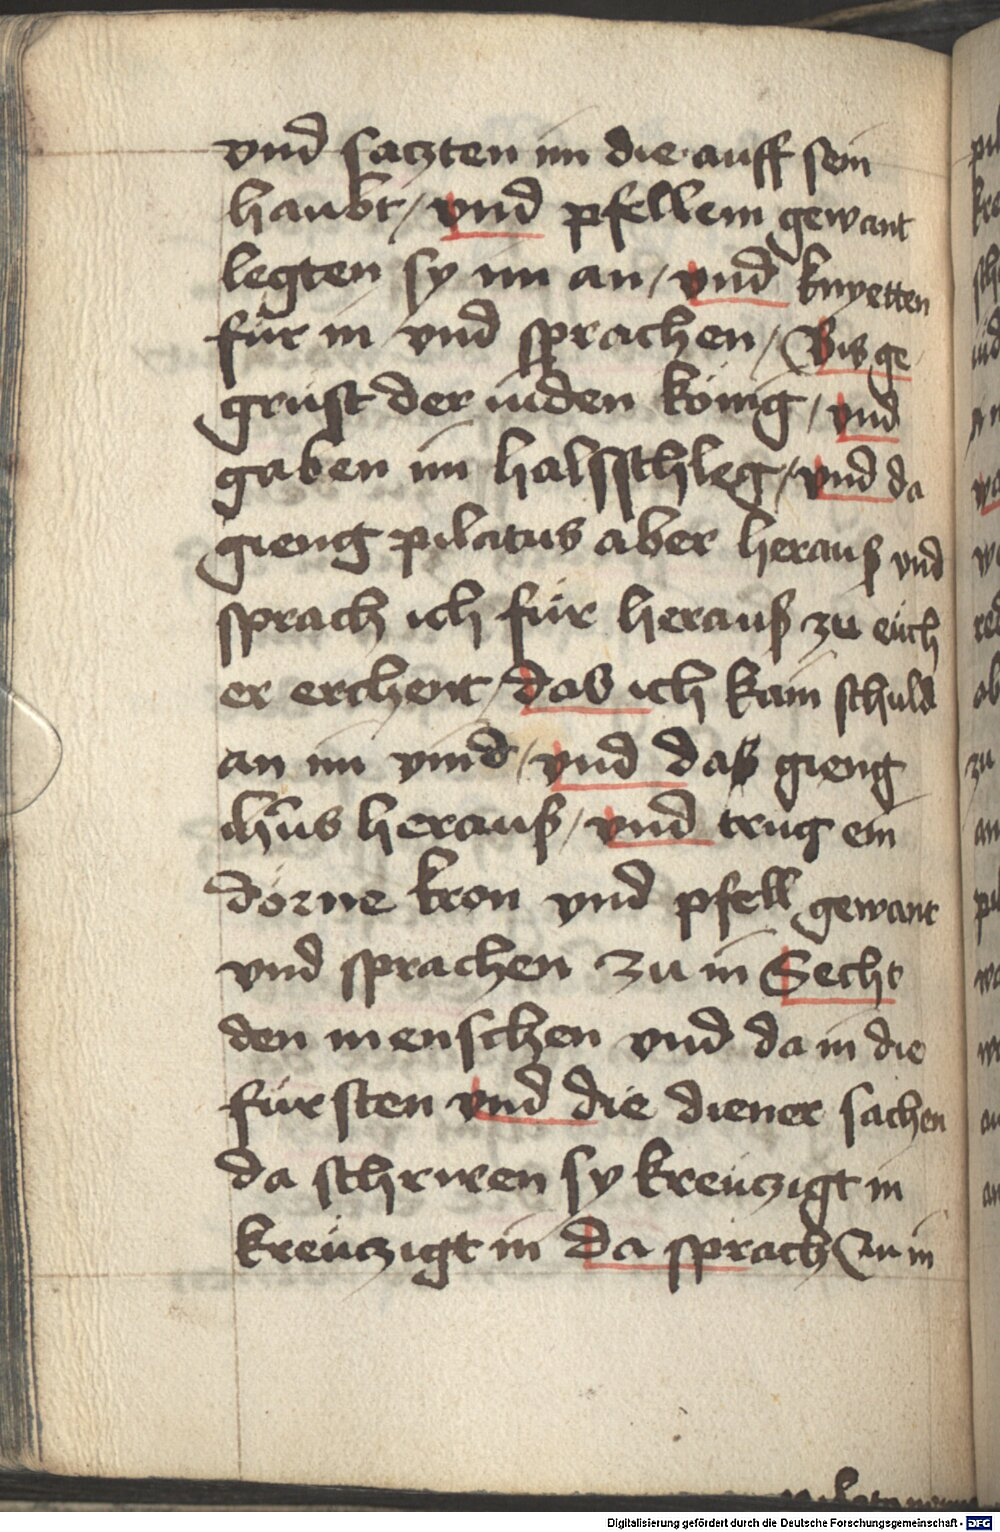 vnd saczten im die auff sein
haubt / vnd pfellem gewant
legten sy im an / vnd knyetten
für in vnd sprachen / Bis ge
grüst der iuden könig / vnd
gaben im halsschleg / vnd da
gieng pilatus aber herauß vnd
sprach ich für herauß zu eüch
er erchent / das ich kain schuld
an im vind / vnd das gieng
ihus herauß / vnd trug ein
dörne kron vnd pfell gewant
vnd sprachen zu in Secht
den menschen vnd da in die
fürsten vnd die diener sachen
da schriren sy kreüczigt in
kreüczigt in da sprach zu in
Digitalisierung gefördert durch die Deutsche Forschungsgemeinschaft - DFG